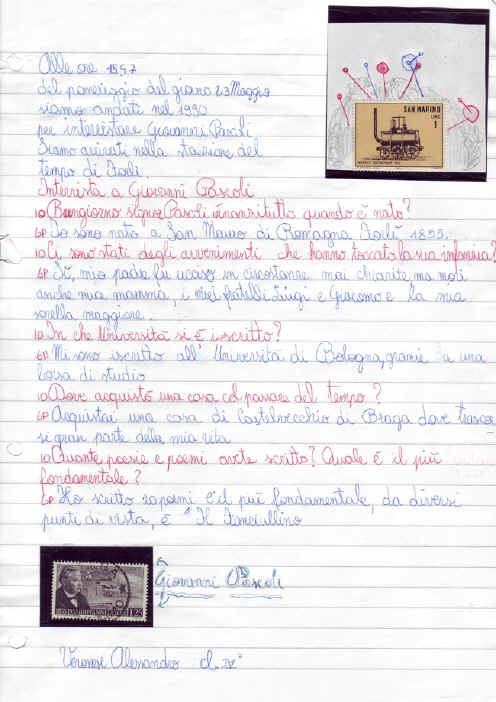 Alle ore 15:47
del pomeriggio del giorno 23 Maggio
siamo andati nel 1990
per intervistare Giovanni Pascoli
Siamo arivati nella stazione del
tempo di Forlì.
SAN MARINO
LIRE
1
Intervista a Giovanni Pascoli
Buongiorno signor Pascoli innanzitutto quando è nato?
Io sono nato a San Mauro di Romagna Forlì 1855.
Ci sono stati degli avvenimenti che hanno toccato la sua infanzia?
Sì, mio padre fu ucciso in circostanze mai chiarite ma morì
anche mia mamma, i miei fratelli Luigi e Giacomo e la mia
sorella maggiore.
In che Università si è iscritto?
Mi sono iscritto all' Università di Bologna, grazie a una
borsa di studio
Dove acquistò una casa col passare del tempo?
Acquistai una casa di Castelvecchio di Braga dove trascor
si gran parte della mia vita
Quante poesie e poemi avete scritto? Quale è il più
fondamentale?
Ho scritto poemi e il più fondamentale, da diversi
punti di vista, è " Il Fanciullino
Giovanni Pascoli
L.25
Veronesi Alessandro cl. IV°